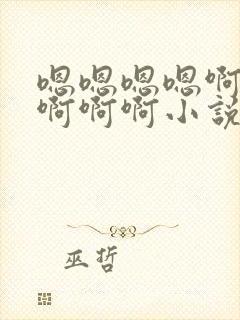 嗯嗯嗯嗯啊
啊啊啊小说
巫哲